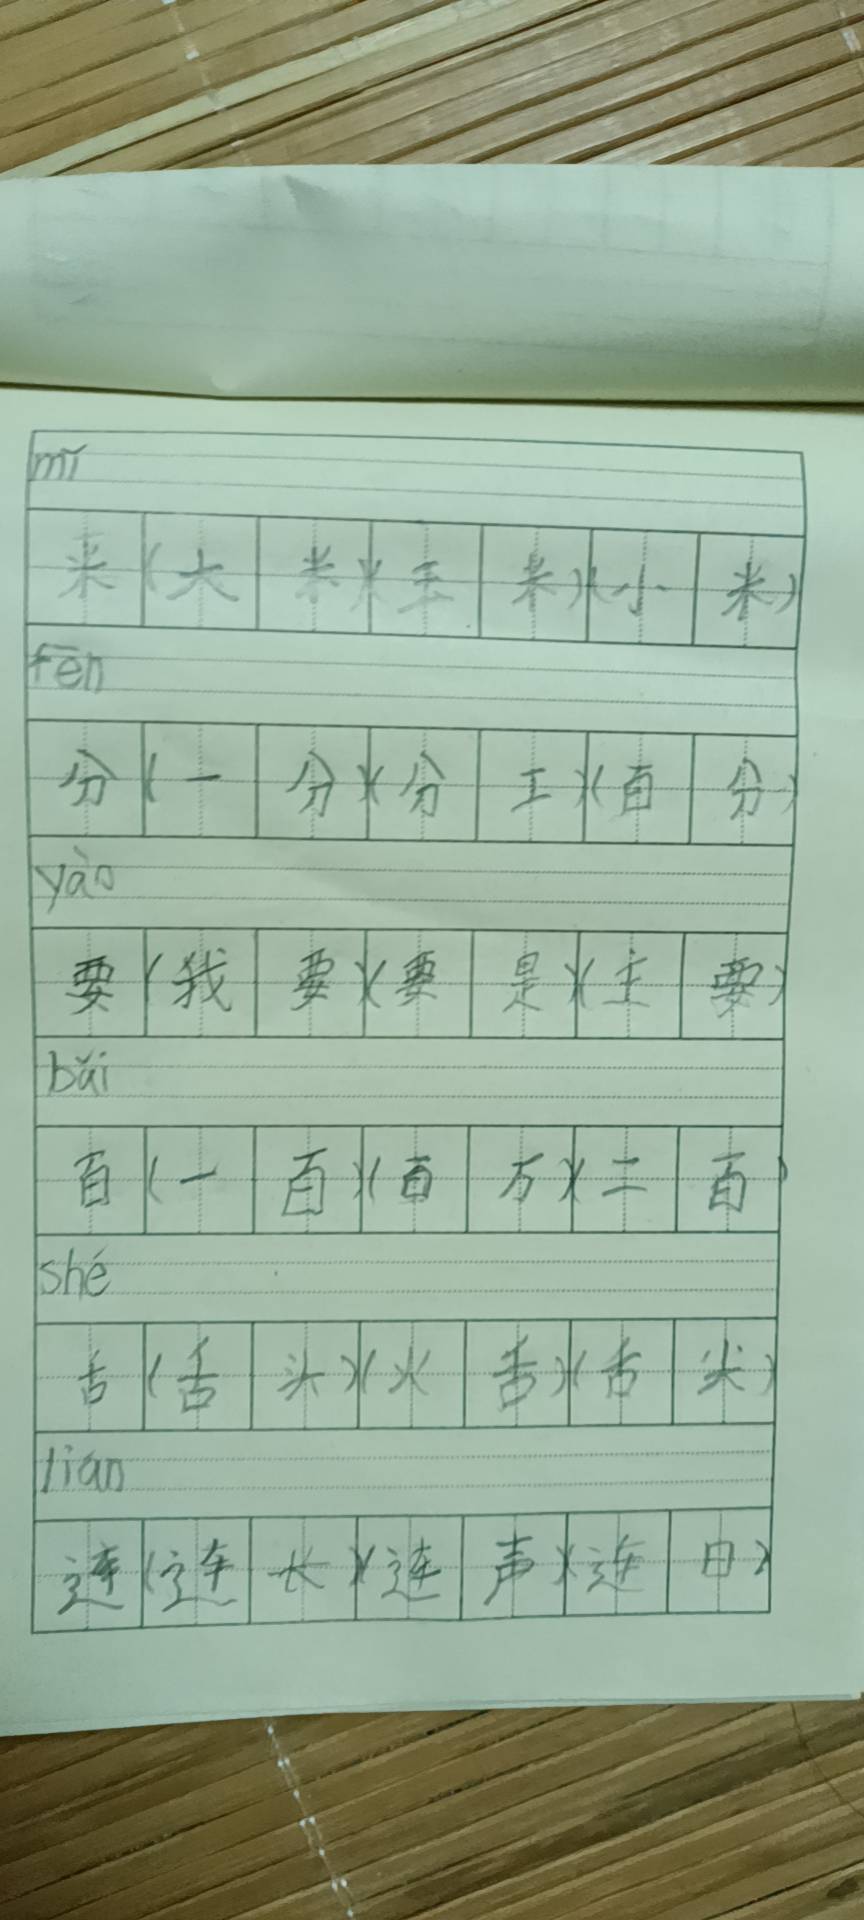 mǐ
米(大米)(玉米)(小米)
fēn
分(一分)(分工)(百分)
yào
要(我要)(要是)(主要)
bǎi
百(一百)(百万)(二百)
shé
舌(舌头)(火舌)(舌尖)
lián
连(连长)(连声)(连日)